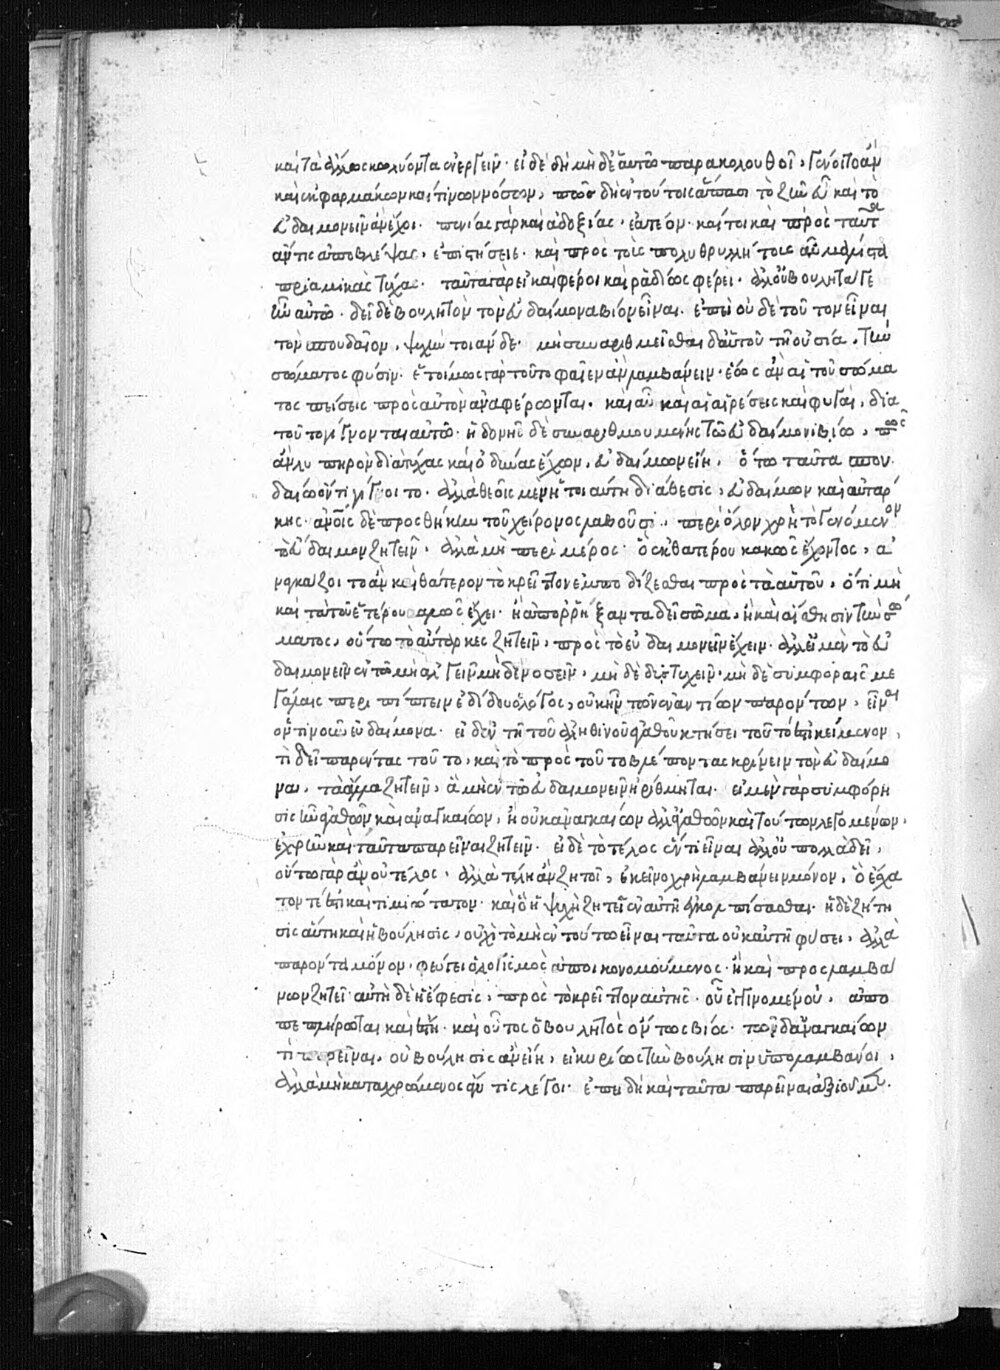 καὶ τὰ ὅλως κωλύοντα ἐνεργεῖν· εἰ δὲ δὴ μὴ δὲ ἑαυτῶ παρακολουθοῖ, γένοιτο ἂν
καὶ ἐκ φαρμάκων καί τινων νόσων, πῶς δὴ ἐν τούτοις ἅπασι τὸ ζῆν εὖ καὶ τὸ
εὐδαιμονεῖν ἂν ἔχοι· πενίας γὰρ καὶ ἀδοξίας· ἐατέον· καίτοι καὶ πρὸς ταῦτα
ἄν τις ἀποβλέψας, ἐπιστήσειε· καὶ πρὸς τὰς πολυθρυλλήτους αὖ μάλιστα
πριαμικὰς τύχας· ταῦτα γὰρ εἰ καὶ φέροι καὶ ῥαδίως φέρει· ἀλλ' οὐ βουλητά γε
ἦν αὐτῶ· δεῖ δὲ βουλητὸν τὸν εὐδαίμονα βίον εἶναι· ἐπεὶ οὐδὲ τοῦτον εἶναι
τὸν σπουδαῖον, ψυχὴν τοιάνδε· μὴ συναριθμεῖσθαι δ' αὐτοῦ τῇ οὐσία, τὴν
σώματος φύσιν· ἑτοίμως γὰρ τοῦτο φαῖεν ἂν λαμβάνειν· ἕως ἂν αἱ τοῦ σώμα
τος πείσεις πρὸς αὐτὸν ἀναφέρωνται· καὶ αὖ καὶ αἱ αἱρέσεις καὶ φυγαὶ, διὰ
τοῦτο γίγνονται αὐτῶ· ἡδονῆς δὲ συναριθμουμένης τῶ εὐδαίμονι βίω, πῶς
ἂν λυπηρὸν διὰ τύχας καὶ ὀδύνας ἔχων, εὐδαίμων εἴη, ὅτω ταῦτα σπου
δαίω ὄντι γίγνοιτο· ἀλλὰ θεοῖς μὲν ἡ τοιαύτη διάθεσις, εὐδαίμων καὶ αὐτάρ
κης· ἀνοις δὲ προσθήκην τοῦ χείρονος λαβοῦσι, περὶ ὅλον χρὴ τὸ γενόμενον
τὸ εὔδαιμον ζητεῖν, ἀλλὰ μὴ περὶ μέρος· ὃ ἐκ θατέρου κακῶς ἔχοντος, ἀ
ναγκάζοιτο ἂν καὶ θάτερον τὸ κρεῖττον ἐμποδίζεσθαι πρὸς τὰ αὑτοῦ, ὅτι μὴ
καὶ τὰ τοῦ ἑτέρου καλῶς ἔχει· ἢ ἀπορρήξαντα δεῖ σῶμα, ἢ καὶ αἴσθησιν τὴν σώ
ματος, οὕτω τὸ αὔταρκες ζητεῖν, πρὸς τὸ εὐδαιμονεῖν ἔχειν· ἀλλ' εἰ μὲν τὸ εὐ
δαιμονεῖν ἐν τῶ μὴ ἀλγεῖν μηδὲ νοσεῖν, μηδὲ δυστυχεῖν· μηδὲ συμφοραῖς με
γάλαις περιπίπτειν ἐδίδου ὁ λόγος, οὐκ ἦν τῶν ἐναντίων παρόντων, εἶναι
ὁντινοῦν εὐδαίμονα· εἰ δ' ἐν τῇ τοῦ ἀληθινοῦ ἀγαθοῦ κτήσει τοῦτό ἐστι κείμενον,
τί δεῖ παρέντας τοῦτο, καὶ τὸ πρὸς τοῦτο βλέποντας κρίνειν τὸν εὐδαίμο
να, τὰ ἄλλα ζητεῖν, ἃ μὴ ἐν τῶ εὐδαιμονεῖν ἠρίθμηται· εἰ μὲν γὰρ συμφόρη
σις ἦν ἀγαθῶν καὶ ἀναγκαίων, ἢ οὐκ ἀναγκαίων ἀλλ' ἀγαθῶν καὶ τούτων λεγομένων,
ἐχρῆν καὶ ταῦτα παρεῖναι ζητεῖν· εἰ δὲ τὸ τέλος ἕν τι εἶναι ἀλλ' οὐ πολλὰ δεῖ,
οὕτω γὰρ ἂν οὐ τέλος· ἀλλὰ τέλη ἂν ζητοῖ, ἐκεῖνο χρὴ λαμβάνειν μόνον, ὃ ἔσχα
τόν τέ ἐστι καὶ τιμιώτατον· καὶ ὃ ἡ ψυχὴ ζητεῖ ἐν αὐτῇ ἐγκολπίσασθαι· ἡ δὲ ζήτη
σις αὕτη καὶ ἡ βούλησις, οὐχὶ τὸ μὴ ἐν τούτω εἶναι ταῦτα οὐκ αὐτῇ φύσει, ἀλλὰ
παρόντα μόνον· φεύγει ὁ λογισμὸς ἀποικονομούμενος· ἢ καὶ προσλαμβά
νων ζητεῖ· αὐτὴ δὲ ἡ ἔφεσις, πρὸς τὸ κρεῖττον αὐτῆς· οὗ ἐγγινομένου, ἀπο
πεπλήρωται καὶ ἔστη· καὶ οὗτος ὁ βουλητὸς ὄντως βίος· τῶν δ' ἀναγκαίων
τι παρεῖναι, οὐ βούλησις ἂν εἴη, εἰ κυρίως τὴν βούλησιν ὑπολαμβάνοι,
ἀλλὰ μὴ καταχρώμενος ἄν τις λέγοι· ἐπειδὴ καὶ ταῦτα παρεῖναι ἀξιοῦμεν·